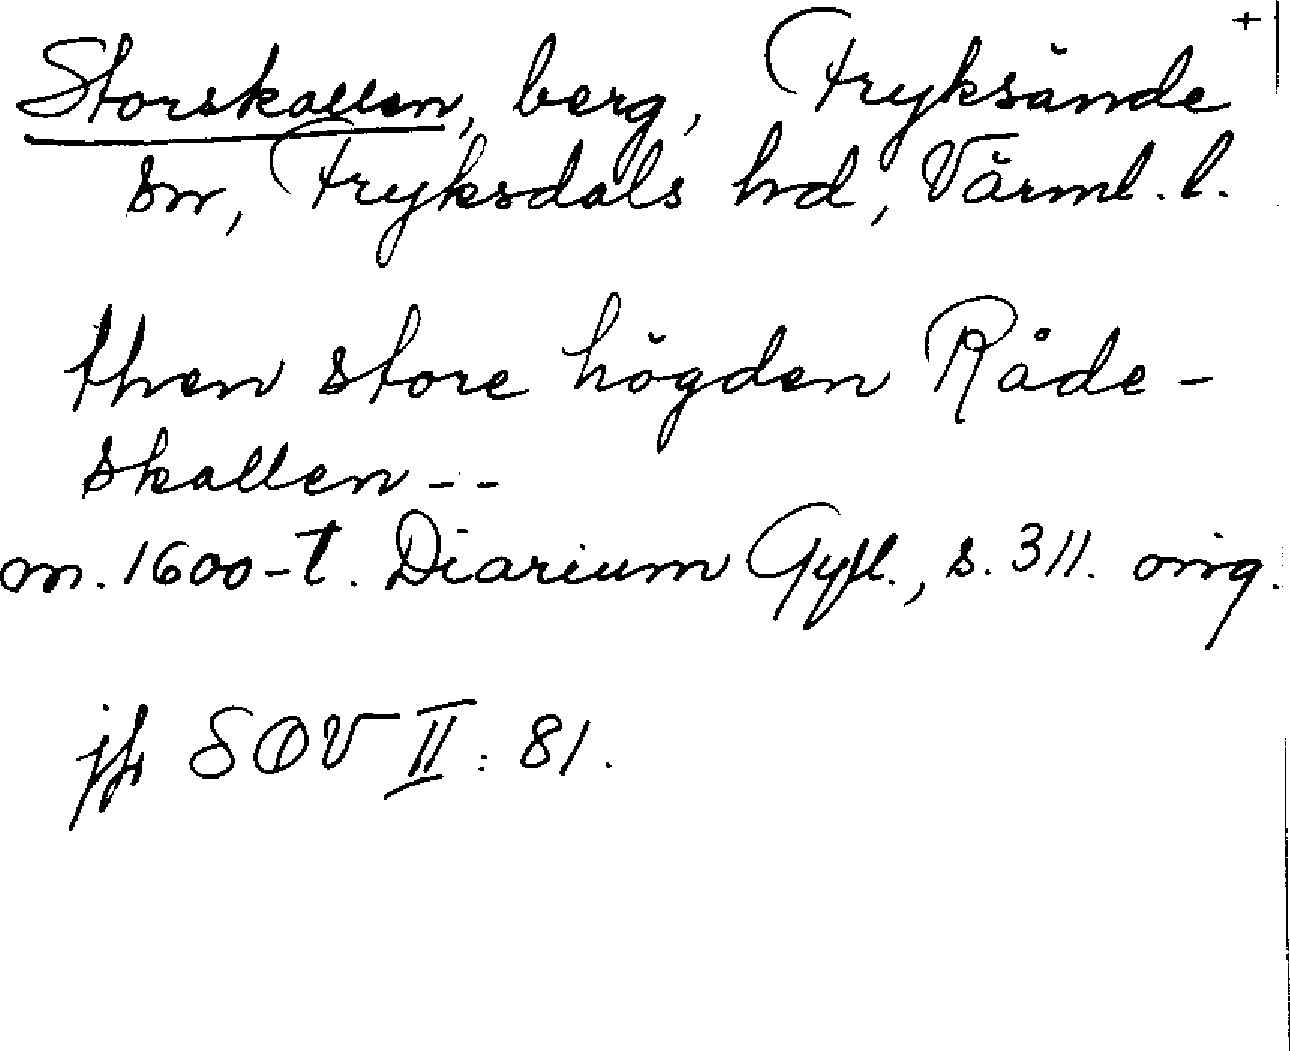 +
Storskallen, berg, Fryksände
sn, Fryksdals hd, Värml. l.
then store högden Råde-
skallen --
m. 1600-t. Diarium Gyll., s. 311. orig.
jfr SOV II: 81.